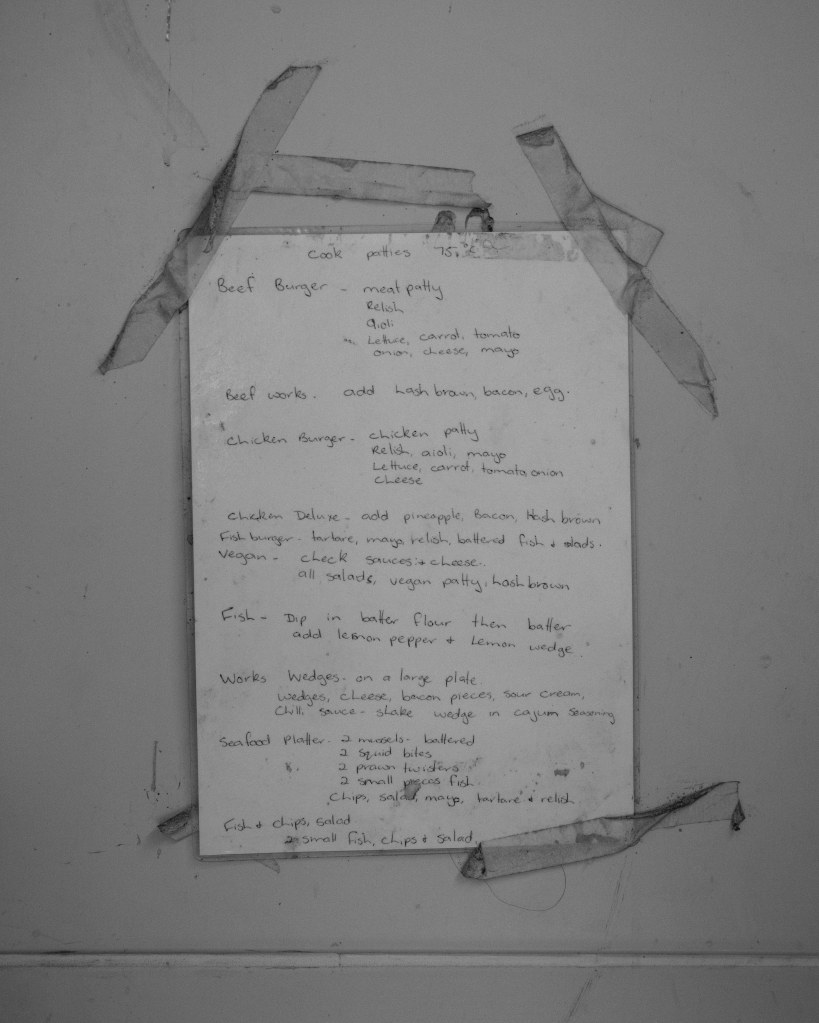 Cook patties 75.
Beef Burger - meat patty
Relish
aioli
Lettuce, carrot, tomato
onion, cheese, mayo
Beef works. add hash brown, bacon, egg.
Chicken Burger - chicken patty
Relish, aioli, mayo
Lettuce, carrot, tomato, onion
cheese
Chicken Deluxe - add pineapple, Bacon, Hash brown
Fish burger - tartare, mayo relish, battered fish + salads.
Vegan - check sauces + cheese.
all salads, vegan patty, hash brown
Fish - Dip in batter flour then batter
add lemon pepper + Lemon wedge.
Works Wedges - on a large plate
wedges, cheese, bacon pieces, sour cream,
Chilli sauce - shake wedge in cajum seasoning
Seafood Platter. 2 mussels - battered
2 squid bites
2 prawn twisters
2 small pieces fish
Chips, salad, mayo, tartare + relish
Fish + chips, salad
2 small fish, chips + salad.